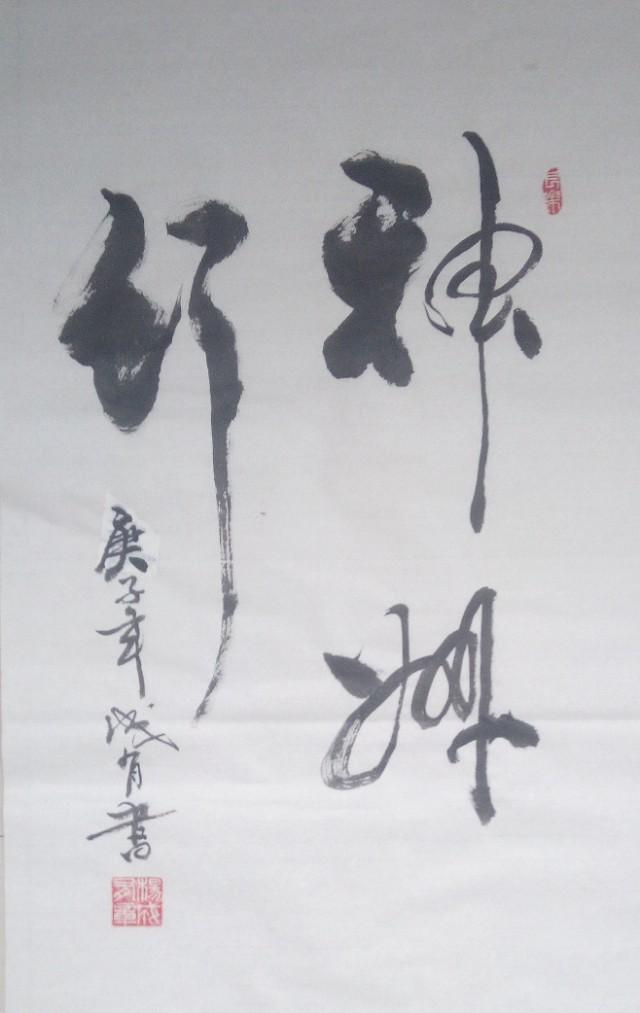 神州
行
庚子年成有書